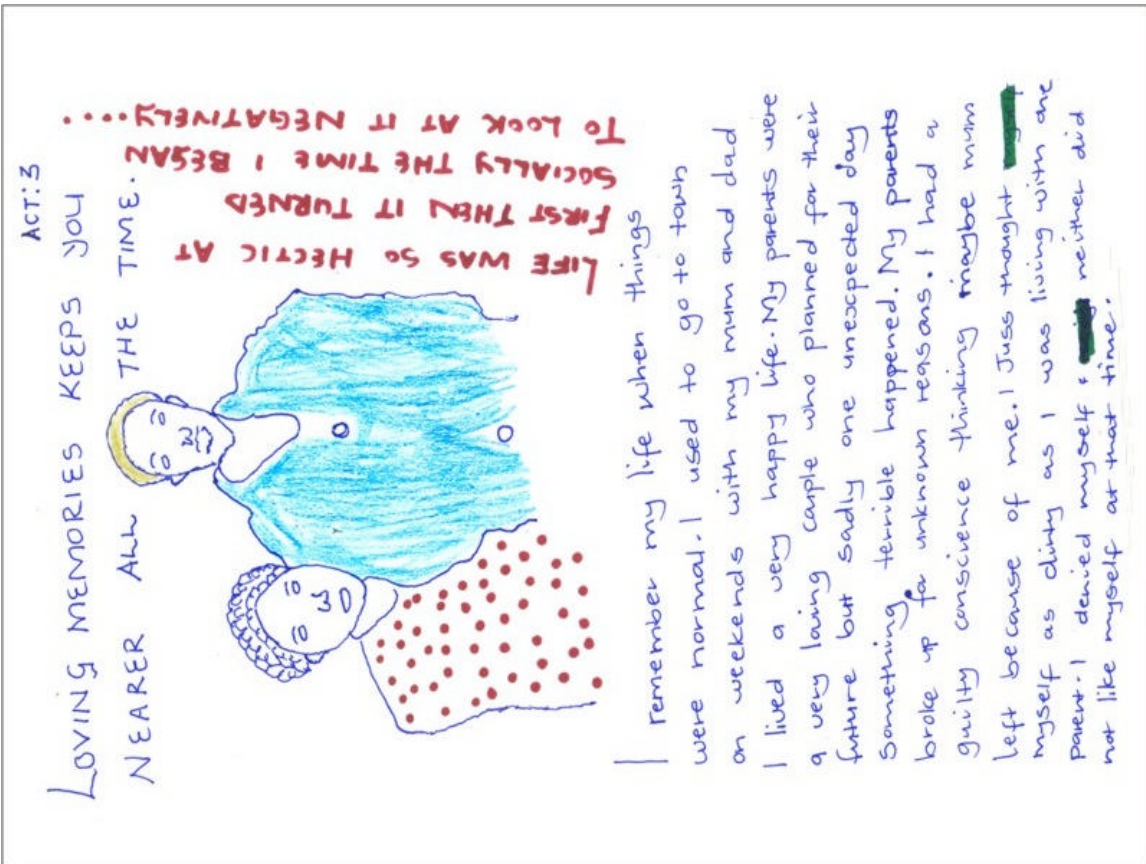 ACT:3
LOVING MEMORIES KEEPS YOU
NEARER ALL THE TIME.
LIFE WAS SO HECTIC AT
FIRST THEN IT TURNED
SOCIALLY THE TIME I BEGAN
TO LOOK AT IT NEGATIVELY....
I remember my life when things
were normal. I used to go to town
on weekends with my mum and dad
I lived a very happy life. My parents were
a very loving couple who planned for their
future but sadly one unexpected day
something terrible happened. My parents
broke up for unknown reasons. I had a
guilty conscience thinking maybe mum
left because of me. I Juss thought
myself as dirty as I was living with one
parent. I denied myself & neither did
not like myself at that time.